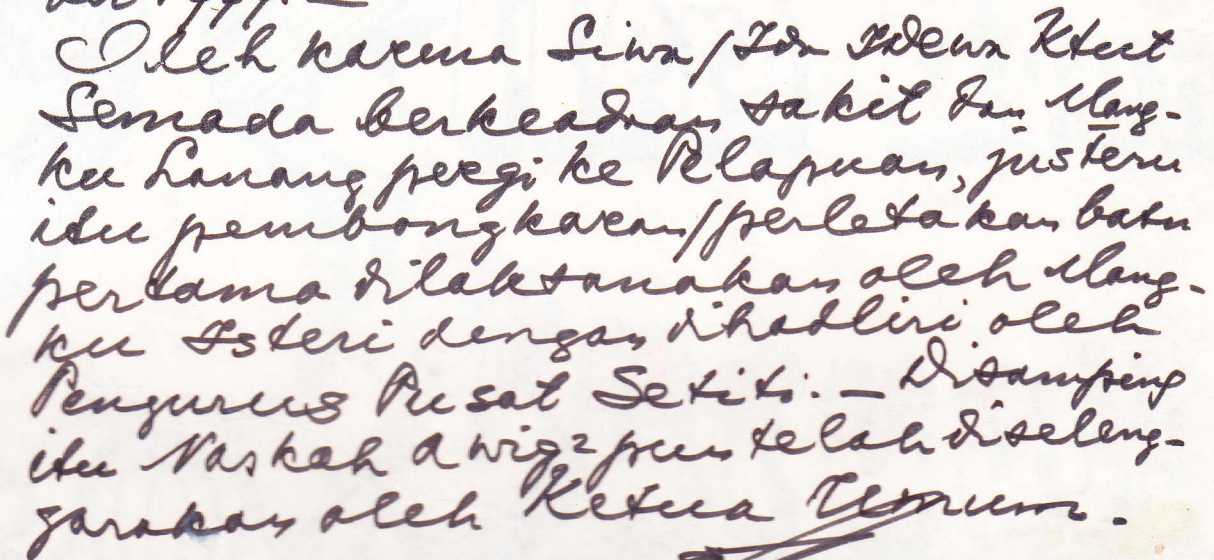 Oleh karena Siwa/Ida Idewa Ktut
Semada berkeadaan sakit dan Mang-
ku Lanang pergi ke Pelapuan, justeru
itu pembongkaran/perletakan batu
pertama dilaksanakan oleh Mang-
ku Isteri dengan dihadliri oleh
Pengurus Pusat Setiti. — Disamping
itu Naskah Awig2 pun telah diseleng-
garakan oleh Ketua Umum.